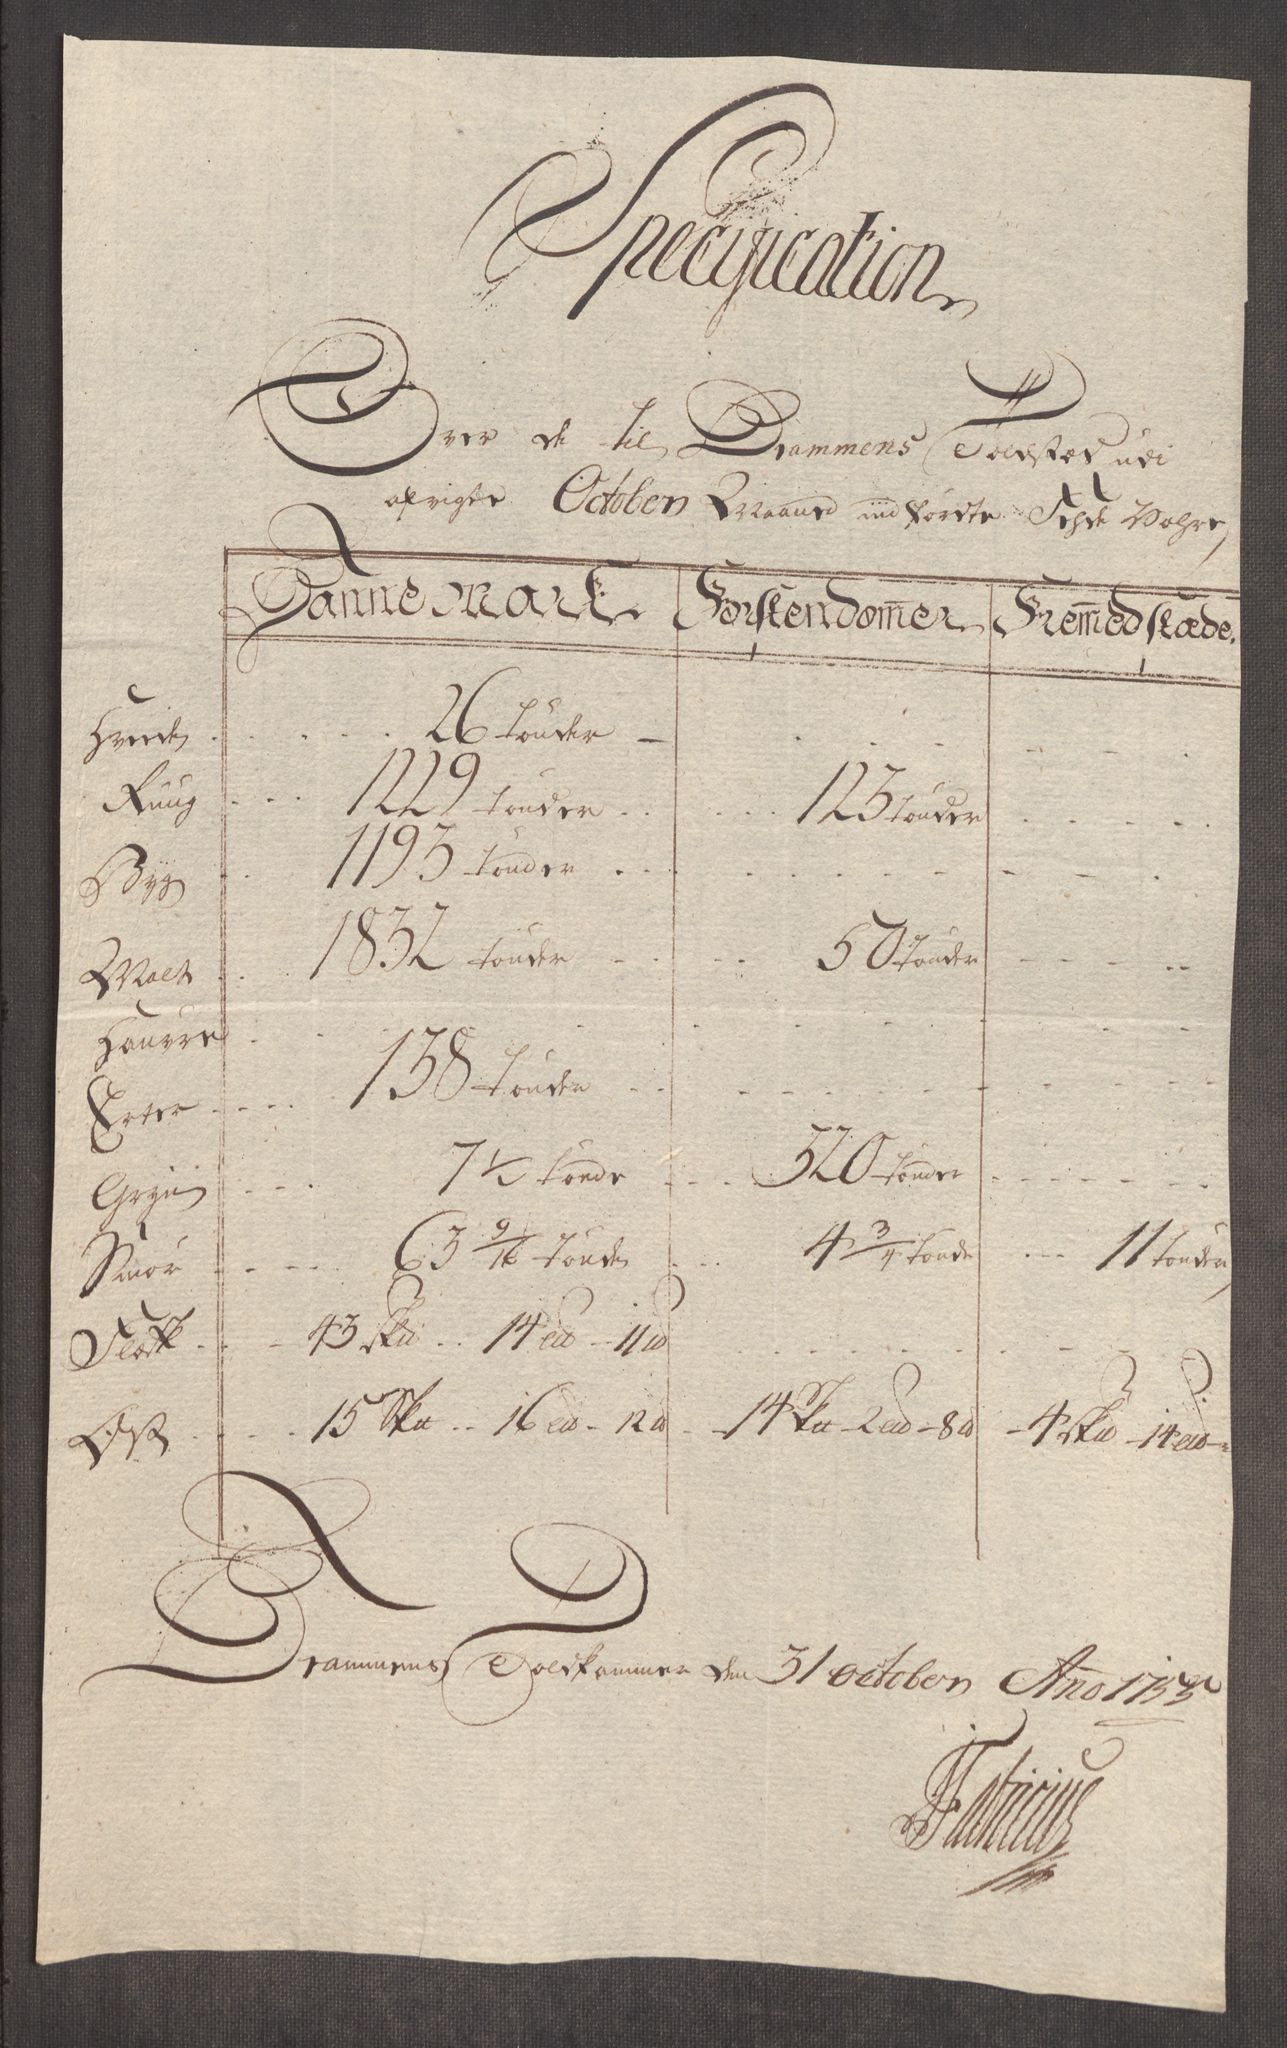 Specification
Over de til Drammens Toldsted udi
afvigte October Maaned indførdte Fehde Vahre,
Dannemark Førstendom̄er Frem̄ed stæder
Hvede 26 tønder
Ruug 1229 tønder 123 tønder
Byg 1193 tønder
Malt 1832 tønder 50 tønder
Haufre
Erter 138 tønder
Gryn 7½ tønde 320 tønder
Smør 63 9/16 tønde 4 3/4 tønde 11 tønder
Flesk 43 Sktt 14 ltt 11 tt
Ost 15 Sktt 16 ltt 12 tt 14 Sktt 2 ltt 8 tt 4 Sktt 14 ltt
Drammens Toldkammer den 31 October Año 1733
Fabricius